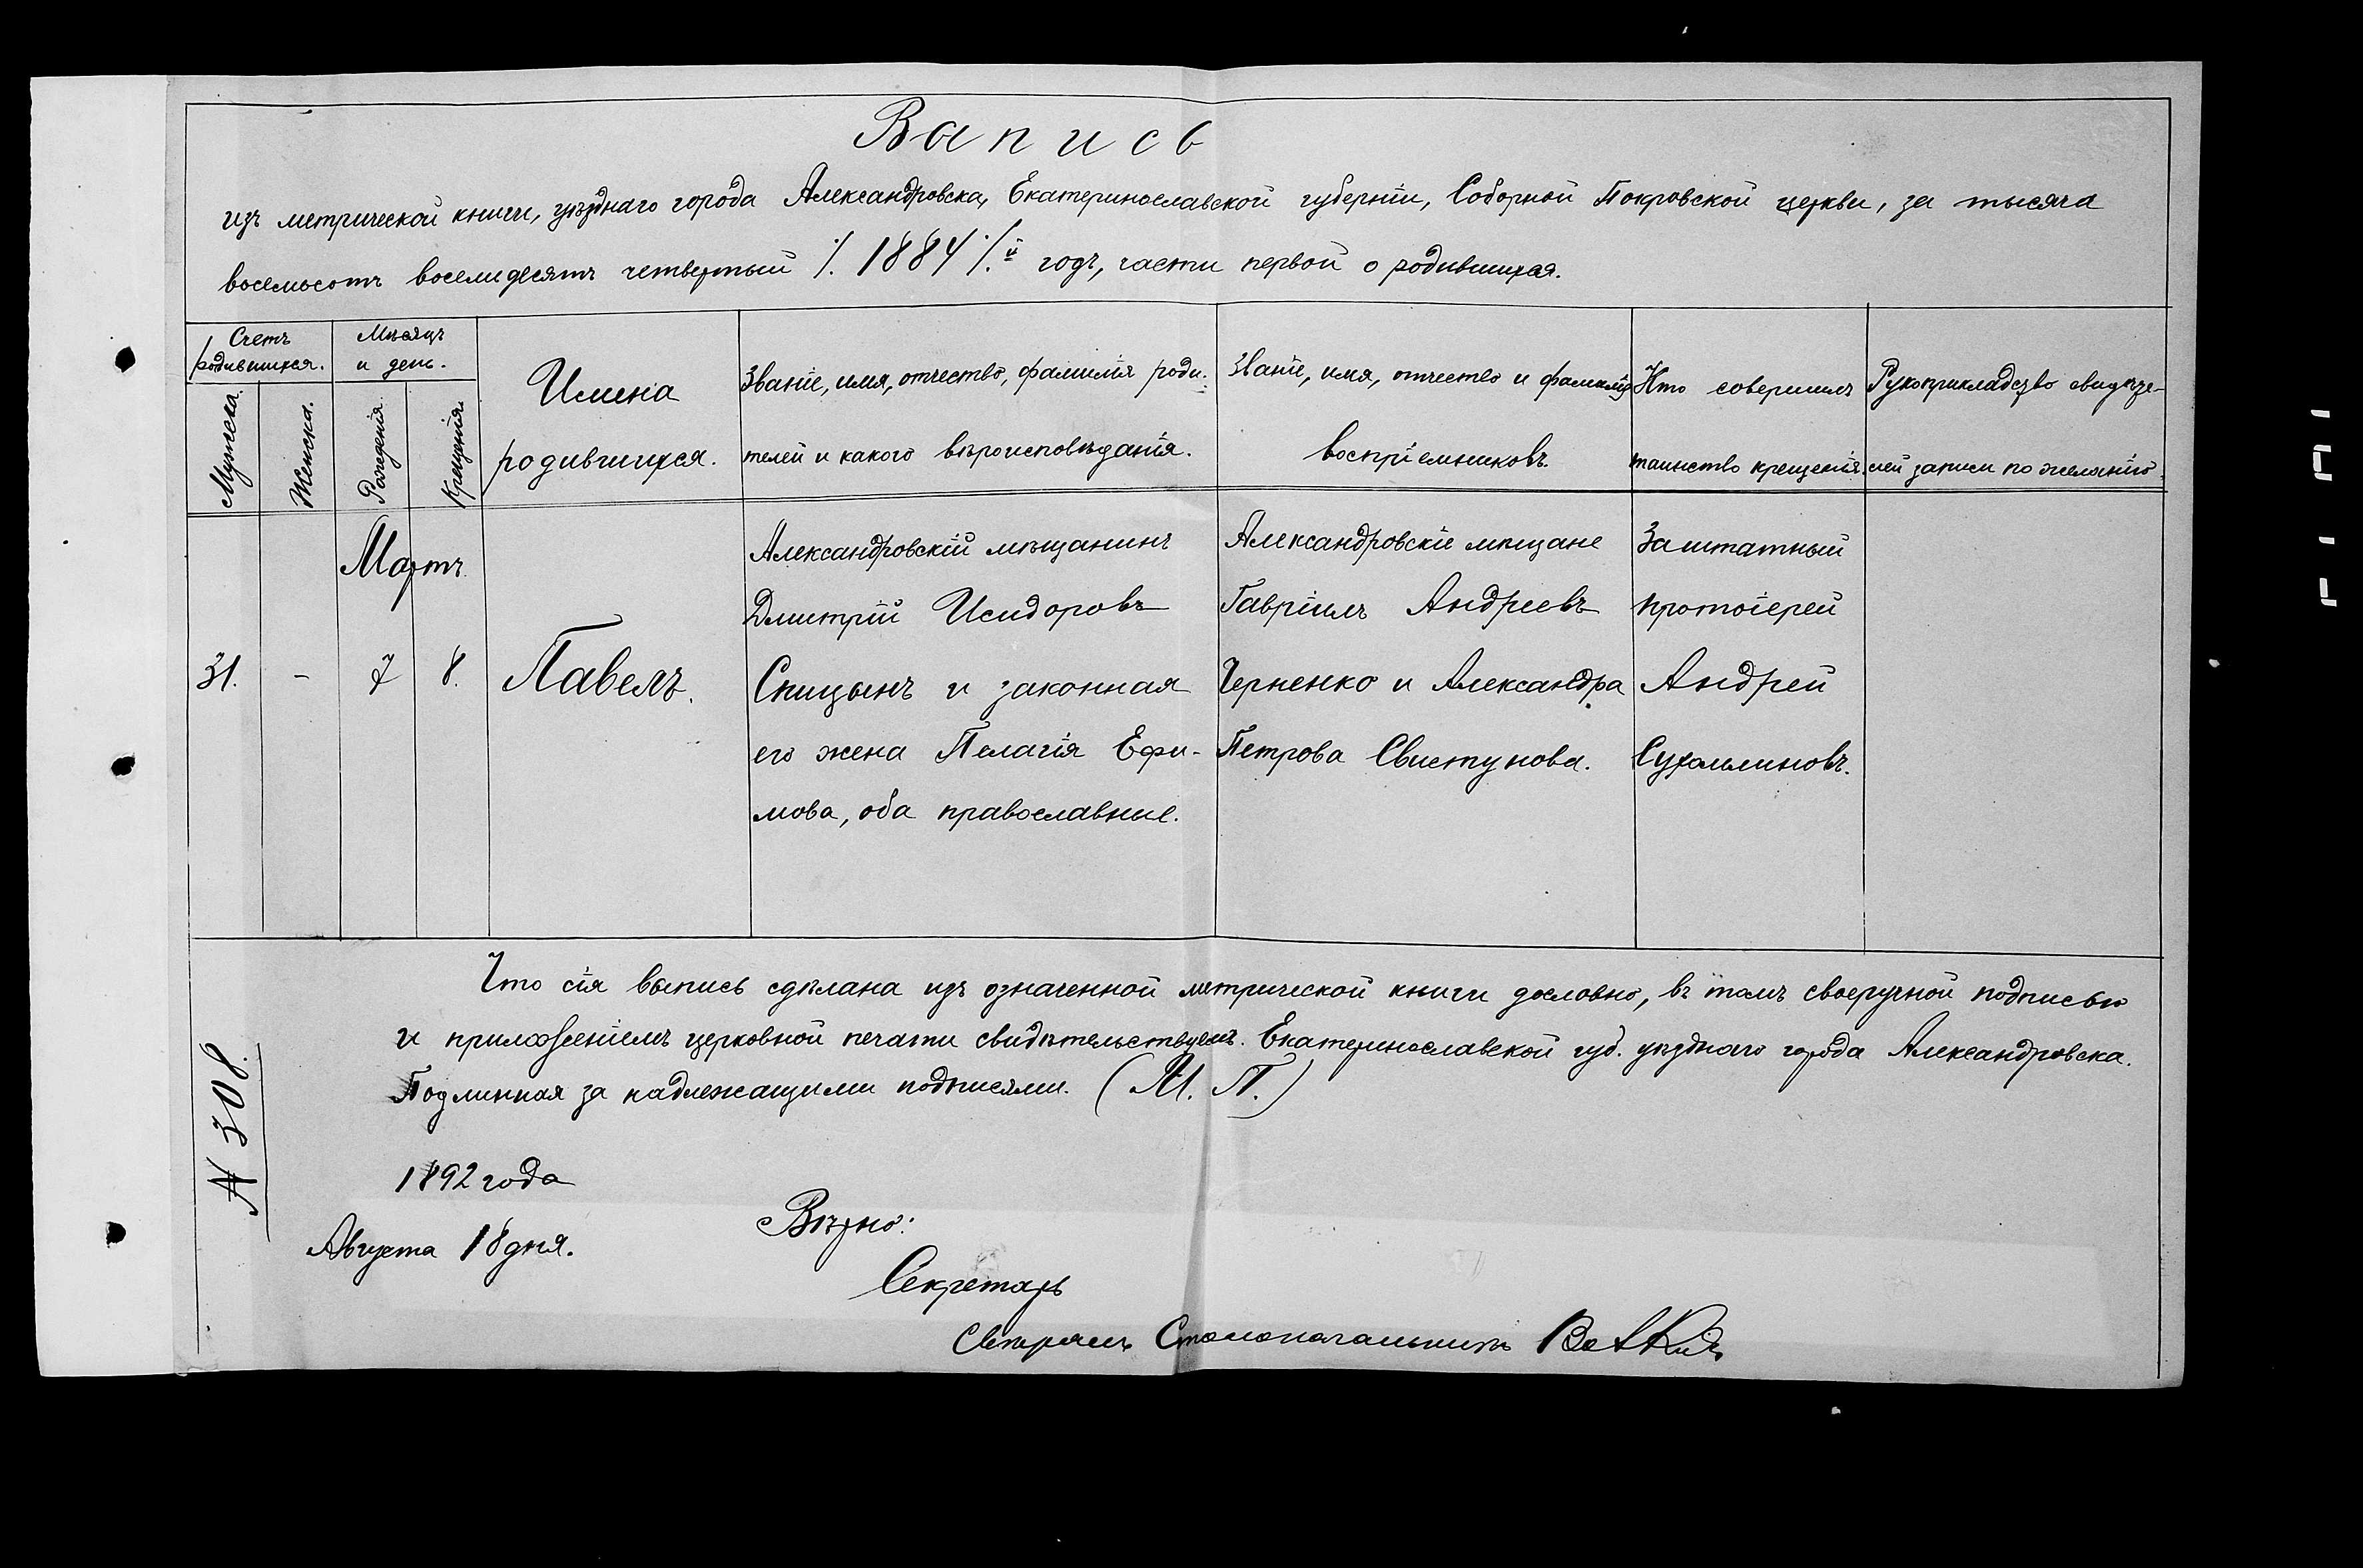 Вапись
изъ метрической книги, уѣзднаго города Александровска, Екатеринославской губерніи, Соборной Покровской церкви, за тысяча
восемьсотъ восемидесятъ четвертый ./. 1884 /.й годъ, части первой о родившихся.
Счетъ
родившихся.
Мужеска.
Женска.
Мѣсяцъ
и день.
Рожденія.
Крещенія.
Имена
родившихся.
Званіе, имя, отчество, фамилія роди-
телей и какого вѣроисповѣданія.
Званіе, имя, отчество и фамилія
воспріемниковъ.
Кто совершилъ
таинство крещенія.
Рукоприкладство свидѣте-
лей записи по желанію.
Мартъ
31.
-
7
8.
Павелъ.
Александровскій мѣщанинъ
Дмитрій Исидоровъ
Спицынъ и законная
его жена Пелагія Ефи-
мова, оба православные.
Александровскіе мѣщане
Гавріилъ Андреевъ
Черненко и Александра
Петрова Свистунова.
Заштатный
протоіерей
Андрей
Сухомлиновъ.
Что сія выпись сдѣлана изъ означенной метрической книги дословно, въ томъ своеручной подписью
и приложеніемъ церковной печати свидѣтельствуемъ. Екатеринославской губ. уѣзднаго города Александровска.
Подлинная за надлежащими подписями. (М. П.)
№ 308.
1892 года
Августа 18 дня.
Вѣрно:
Секретарь
Столоначальникъ